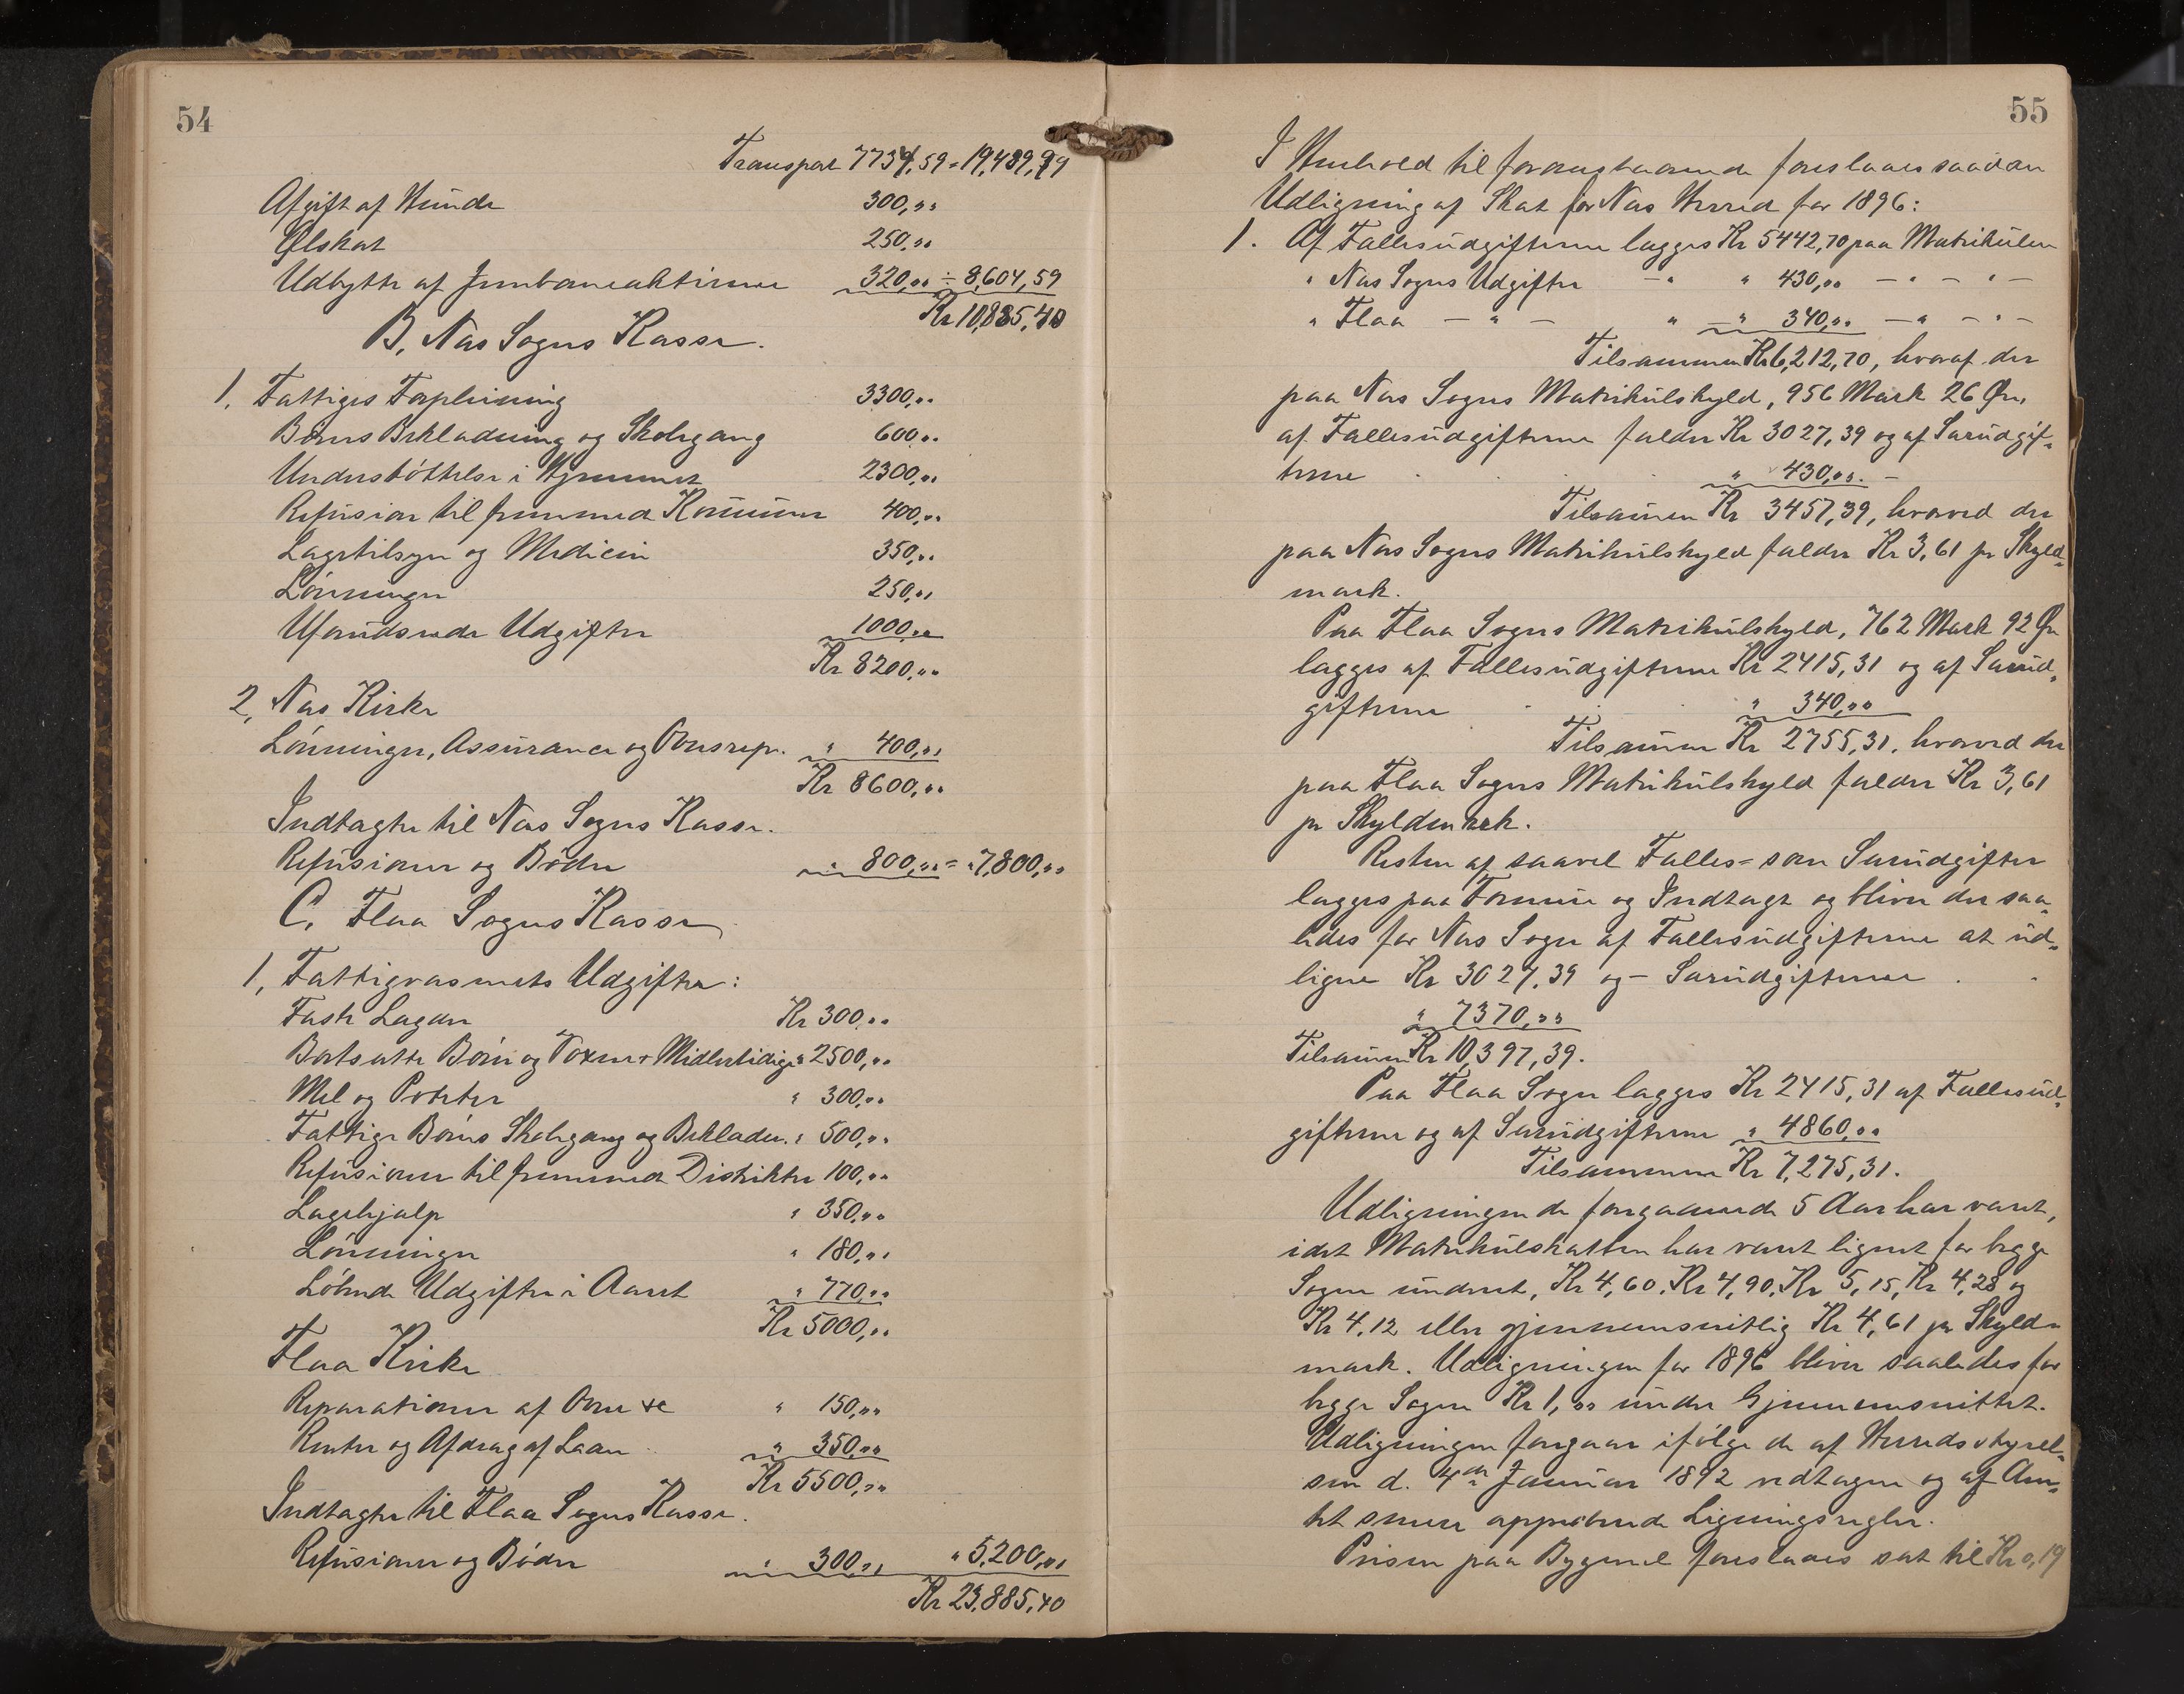 54
Transport 7734,59 = 19,489,99
Afgift af Hunde 300,,,
Ølskat 250,,,
Udbytte af Jernbaneaktierne 320,,, ÷ 8,604,59
Kr 10,885,40
B. Næs Sogns Kasse.
1. Fattiges Forpleining 3300,,,
Børns Beklædning og Skolegang 600,,,
Understøttelse i Hjemmet 2300,,,
Refusion til fremmed Komune 400,,,
Lægetilsyn og Medicin 350,,,
Lønninger 250,,,
Uforudsede Udgifter 1000,,,
Kr 8200,,,
2, Næs Kirke
Lønninger, Assurance og Ovnsrep. " 400,,,
Kr 8600,,,
Indtægter til Næs Sogns Kasse.
Refusioner og Bøder " 800,,, = "7,800,,,
C. Flaa Sogns Kasse
1, Fattigvæsenets Udgifter:
Faste Lægder Kr 300,,,
Bortsatte Børn og Voxne + Midlertidige " 2500,,,
Mel og Poteter " 300,,,
Fattige Børns Skolegang og Beklædn. " 500,,,
Refusioner til fremmede Distrikter 100,,,
Lægehjælp " 350,,,
Lønninger " 180,,,
Løbende Udgifter i Aaret " 770,,,
Kr 5000,,,
Flaa Kirke
Reparationer af Ovne &c " 150,,,
Renter og Afdrag af Laan " 350,,,
Kr 5500,,,
Indtægter til Flaa Sogns Kasse.
Refusioner og Bøder " 300,,, " 5,200,,,
Kr 23,885,40
55
I Henhold til foranstaaende foreslaaes saadan
Udligning af Skat for Næs Herred for 1896:
1. Af Fællesudgifterne lægges Kr 5442,70 paa Matrikulen
" Næs Sogns Udgifter — " " 430,,, — " — " —
" Flaa — " — " — " 340,,, — " — " —
Tilsammen Kr 6,212,70, hvoraf der
paa Næs Sogns Matrikulskyld, 956 Mark 26 Øre,
af Fællesudgifterne falder Kr 3027,39 og af Særudgif-
terne " 430,,,. —
Tilsamen Kr 3457,39, hvorved der
paa Næs Sogns Matrikulskyld falder Kr 3,61 pr Skyld-
mark.
Paa Flaa Sogns Matrikulskyld, 762 Mark 92 Øre
lægges af Fællesudgifterne Kr 2415,31 og af Særud-
gifterne " 340,,,
Tilsamen Kr 2755,31, hvorved der
paa Flaa Sogns Matrikulskyld falder Kr 3,61
pr Skyldmark.
Resten af saavel Fælles= som Særudgifter
lægges paa Formue og Indtægt og bliver der saa-
ledes for Næs Sogn af Fællesudgifterne at ud-
ligne Kr 3027,39 og — Særudgifterne
" 7370,,,
Tilsamen Kr 10,397,39.
Paa Flaa Sogn lægges Kr 2415,31 af Fællesud-
gifterne og af Særudgifterne " 4860,,,
Tilsammen Kr 7,275,31.
Udligningen de foregaaende 5 Aar har været,
idet Matrikulskatten har været lignet for begge
Sogne underet, Kr 4,60, Kr 4,90, Kr 5,15, Kr 4,28 og
Kr 4,12 eller gjennemsnitlig Kr 4,61 pr Skyld-
mark. Udligningen for 1896 bliver saaledes for
begge Sogne Kr 1,,, under Gjennemsnittet.
Udligningen foregaar ifølge de af Herredsstyrel-
sen d. 4de Januar 1892 vedtagne og af Am-
tet senere approberede Ligningsregler.
Prisen paa Bygmel foreslaaes sat til Kr 0,19